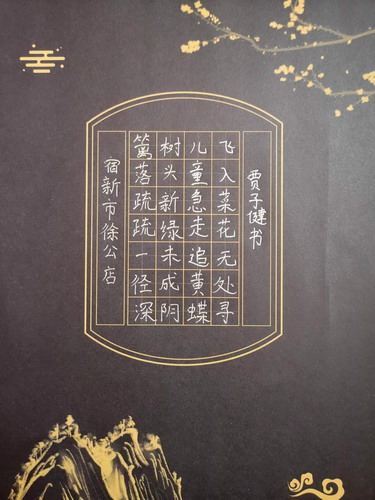 宿新市徐公店
篱落疏疏一径深
树头新绿未成阴
儿童急走追黄蝶
飞入菜花无处寻
贾子健书